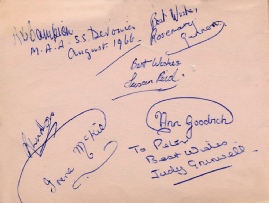 M.A.A. SS Devonia
August 1966
Best Wishes
Rosemary
Best Wishes
Susan Reid.
Irene McKie
Ann Goodrich
To Peter
Best Wishes
Judy